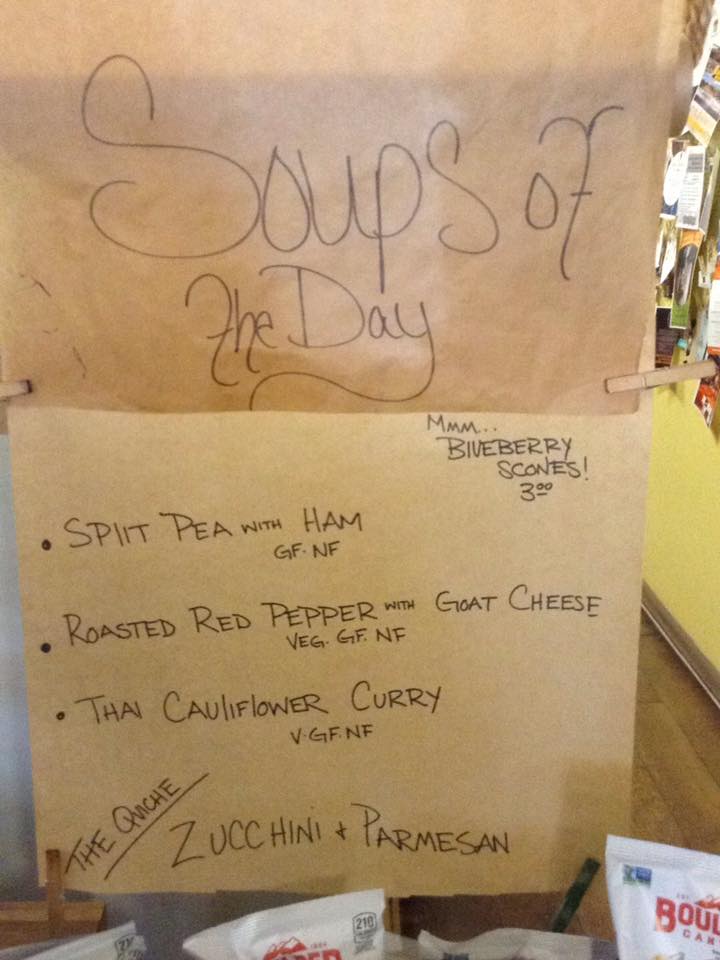 Soups of
The Day
Mmm...
BlUEBERRY
SCONES!
3.00
• SPlIT PEA WITH HAM
GF. NF
• ROASTED RED PEPPER WITH GOAT CHEESE
VEG. GF. NF
• THAI CAUlIFlOWER CURRY
V. GF. NF
THE QUICHE
ZUCCHINI + PARMESAN
210
BOUL
CAN